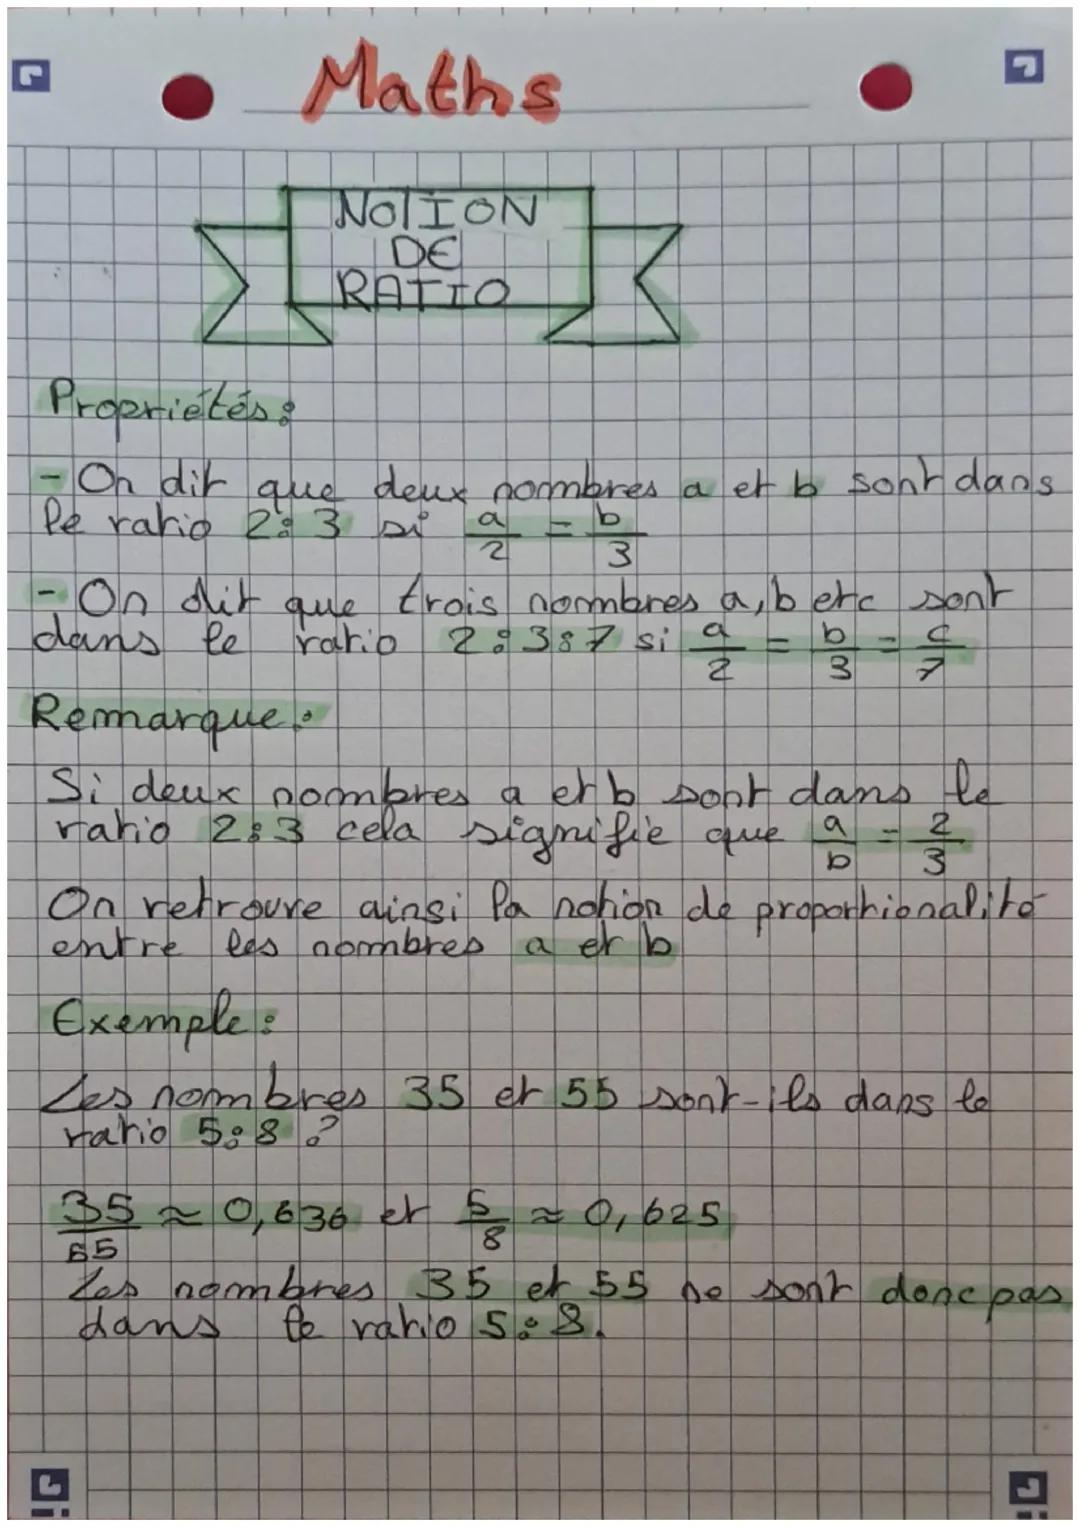 Maths
NOTION
DE
RATIO
Propriétés :
- On dit que deux nombres a et b sont dans
le ratio 2:3 si a/2 = b/3
- On dit que trois nombres a, b et c sont
dans le ratio 2:3:7 si a/2 = b/3 = c/7
Remarque :
Si deux nombres a et b sont dans le
ratio 2:3 cela signifie que a/b = 2/3
On retrouve ainsi la notion de proportionalité
entre les nombres a et b
Exemple :
Les nombres 35 et 55 sont-ils dans le
ratio 5:8 ?
35/55 ≈ 0,636 et 5/8 ≈ 0,625
Les nombres 35 et 55 ne sont donc pas
dans le ratio 5:8.